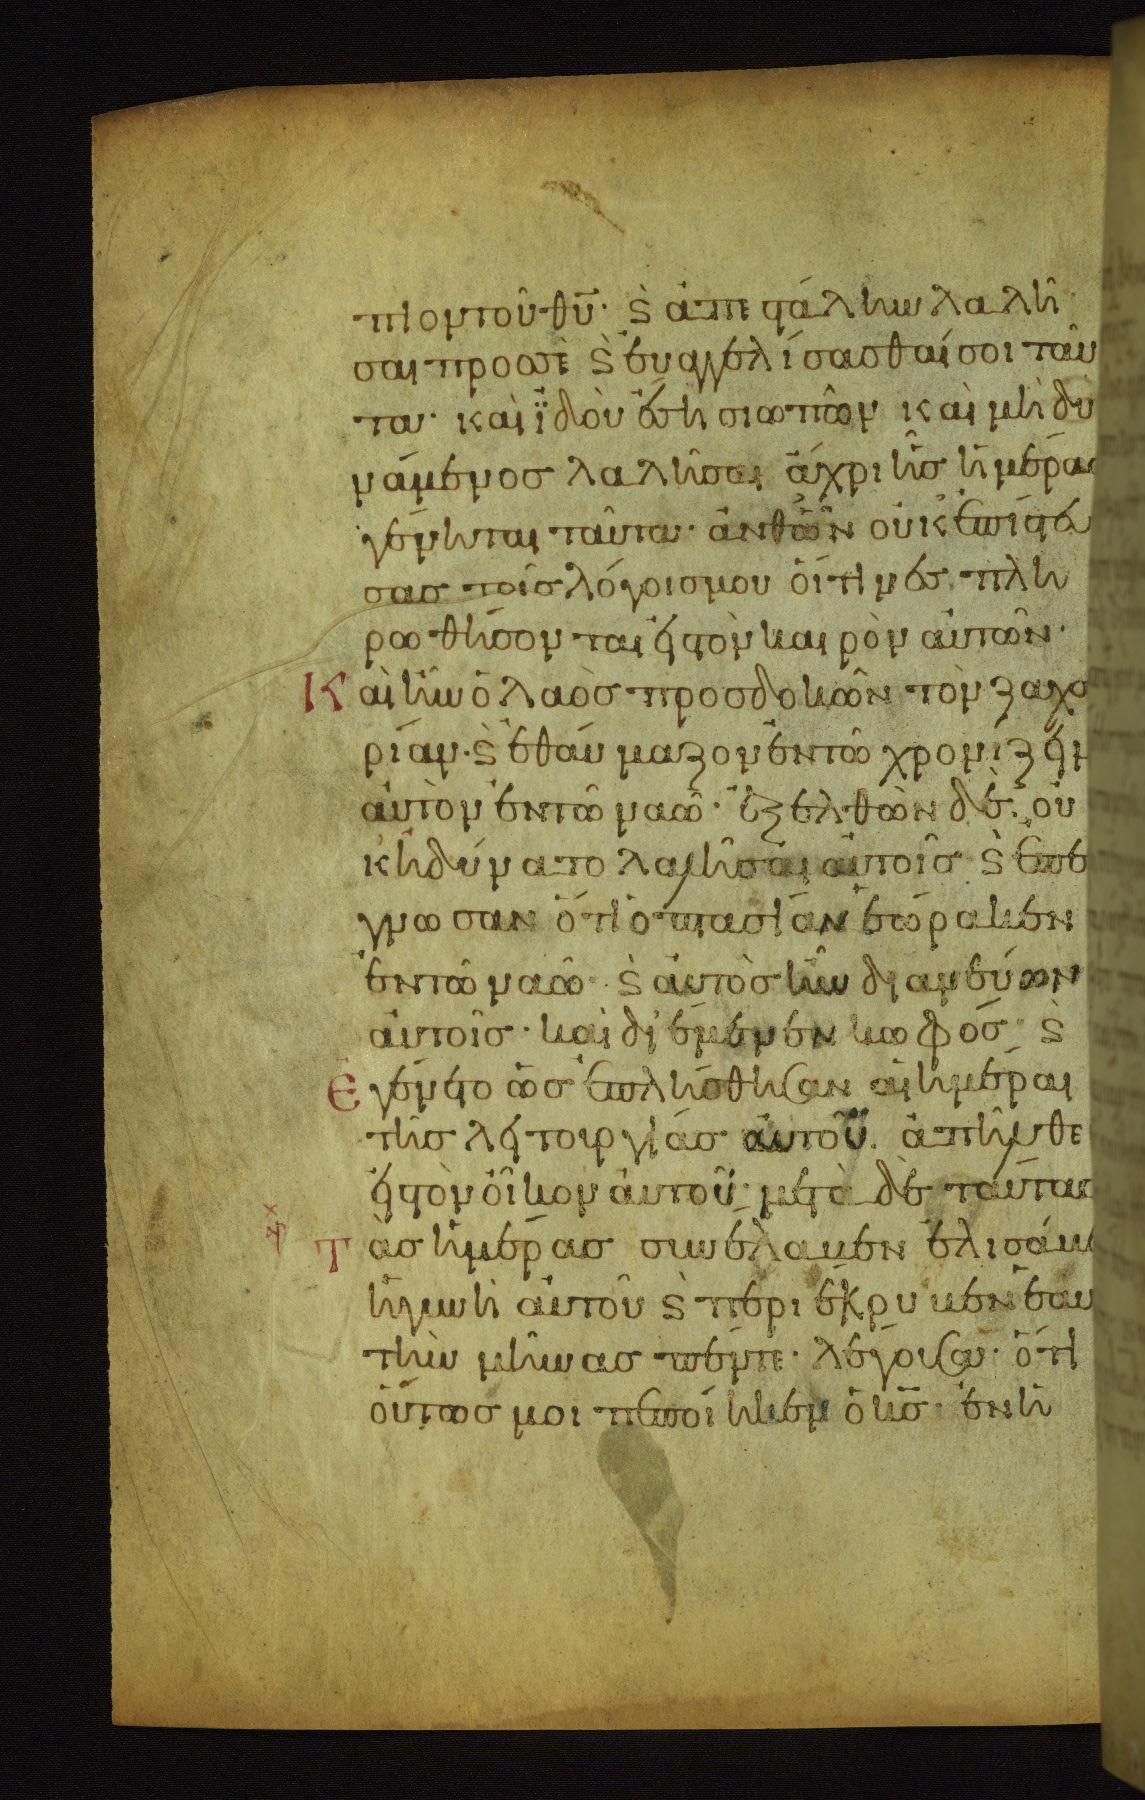 πιον τοῦ θῦ· ϗ ἀπεστάλην λαλῆ
σαι προσὲ ϗ εὐαγγελίσασθαί σοι ταῦ
τα· καὶ ἰδοὺ ἔση σιωπῶν καὶ μὴ δυ
νάμενος λαλῆσαι ἄχρι ἧς ἡμέρας
γένηται ταῦτα· ἀνθῶν οὐκ ἐπίστευ
σας τοῖς λόγοις μου οἵτινες πλη
ρωθήσονται εἰς τὸν καιρὸν αὐτῶν·
Καὶ ἦν ὁ λαὸς προσδοκῶν τὸν ζαχα
ρίαν· ϗ ἐθαύμαζον ἐν τῶ χρονίζειν
αὐτὸν ἐν τῶ ναῶ· ἐξελθὼν δὲ· οὐ
κ ἠδύνατο λαλῆσαι αὐτοῖς ϗ ἐπέ
γνωσαν ὅτι ὀπτασίαν ἑώρακεν
ἐν τῶ ναῶ· ϗ αὐτὸς ἦν διανεύων
αὐτοῖς· καὶ διέμενεν κωφός· ϗ
Ἐγένετο ὡς ἐπλήσθησαν αἱ ἡμέραι
τῆς λειτουργίας αὐτοῦ. ἀπῆλθε
εἰς τὸν οἶκον αὐτοῦ· μετὰ δὲ ταύτας
Τὰς ἡμέρας συνέλαβεν ἐλισάβε
ἡ γυνὴ αὐτοῦ ϗ περιέκρυβεν ἑαυ
τὴν μῆνας πέντε· λέγουσα· ὅτι
οὕτως μοι πεποίηκεν ὁ κς· ἐν ἡ